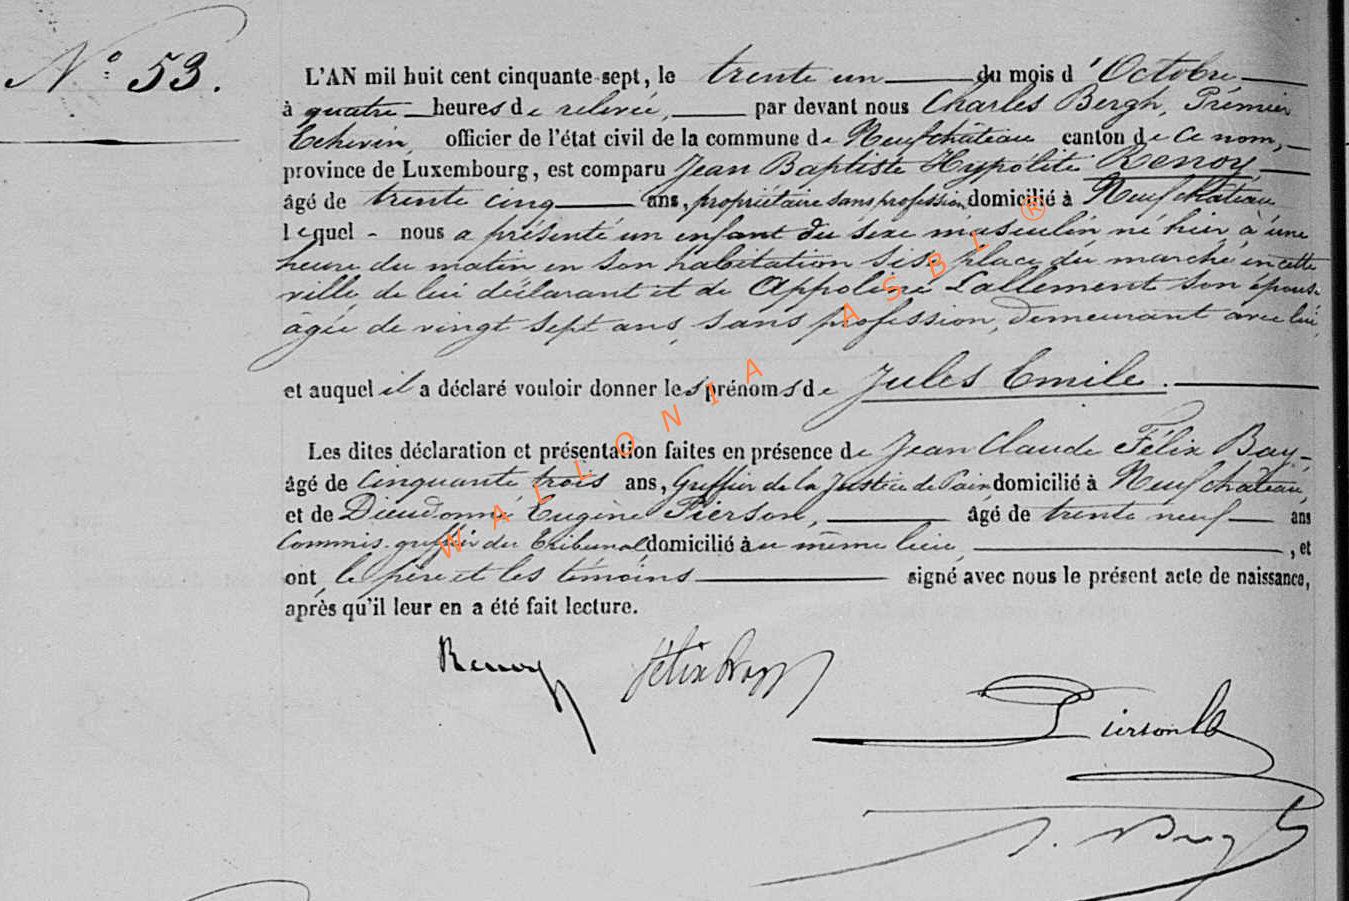 N° 53.
L'AN mil huit cent cinquante-sept, le trente un du mois d'Octobre
à quatre heures de relevée, par devant nous Charles Bergh, Prémier
Echevin, officier de l'état civil de la commune de Neufchâteau canton de ce nom,
province de Luxembourg, est comparu Jean Baptiste Hypolite Renoy
âgé de trente cinq ans, propriétaire sans profession, domicilié à Neufchâteau
lequel - nous a présenté un enfant du sexe masculin né hier à une
heure du matin en son habitation sise place du marché en cette
ville de lui déclarant et de Appoline Lallement son épouse
âgée de vingt sept ans, sans profession, demeurant avec lui,
et auquel il a déclaré vouloir donner les prénoms de Jules Emile.
Les dites déclaration et présentation faites en présence de Jean Claude Félix Bay,
âgé de cinquante trois ans, Greffier de la Justice de Paix domicilié à Neufchâteau,
et de Dieudonné Eugène Pierson, âgé de trente neuf ans
Commis-greffier du Tribunal, domicilié au même lieu, , et
ont le père et les témoins signé avec nous le présent acte de naissance,
après qu'il leur en a été fait lecture.
Renoy Félix Bay
Pierson
Bergh
WALLONIA ASBL ®